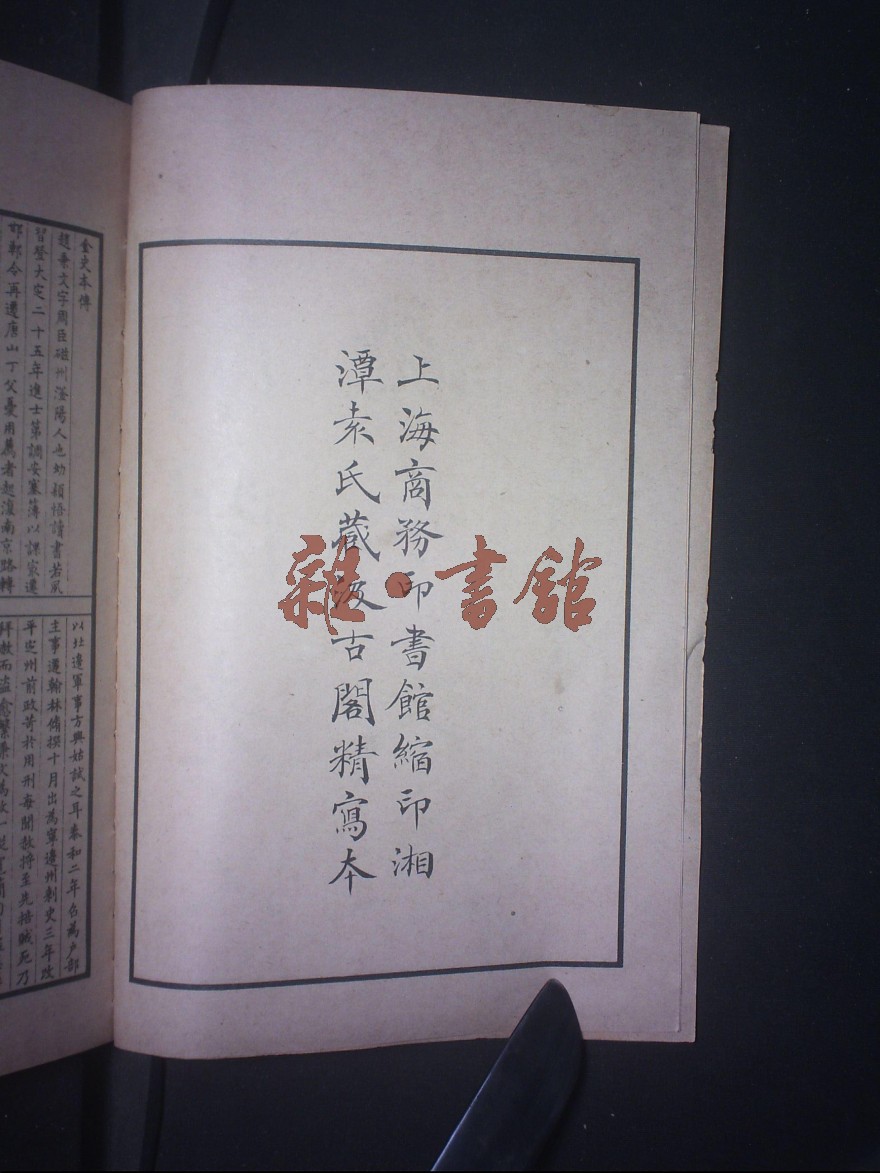 上海商務印書館縮印湘
潭袁氏藏汲古閣精寫本
雜·書館
金史本傳
趙秉文字周臣磁州滏陽人也幼穎悟讀書若夙
習登大定二十五年進士第調安塞簿以課最遷
邯鄲令再遷唐山丁父憂用薦者起復南京路轉
以北邊軍事方興姑試之耳泰和二年召為户部
主事遷翰林脩撰十月出為寧邊州刺史三年改
平定州前政苛於用刑每聞赦將至先掊賊死乃
拜赦而盜愈繁秉文為政一從寬簡